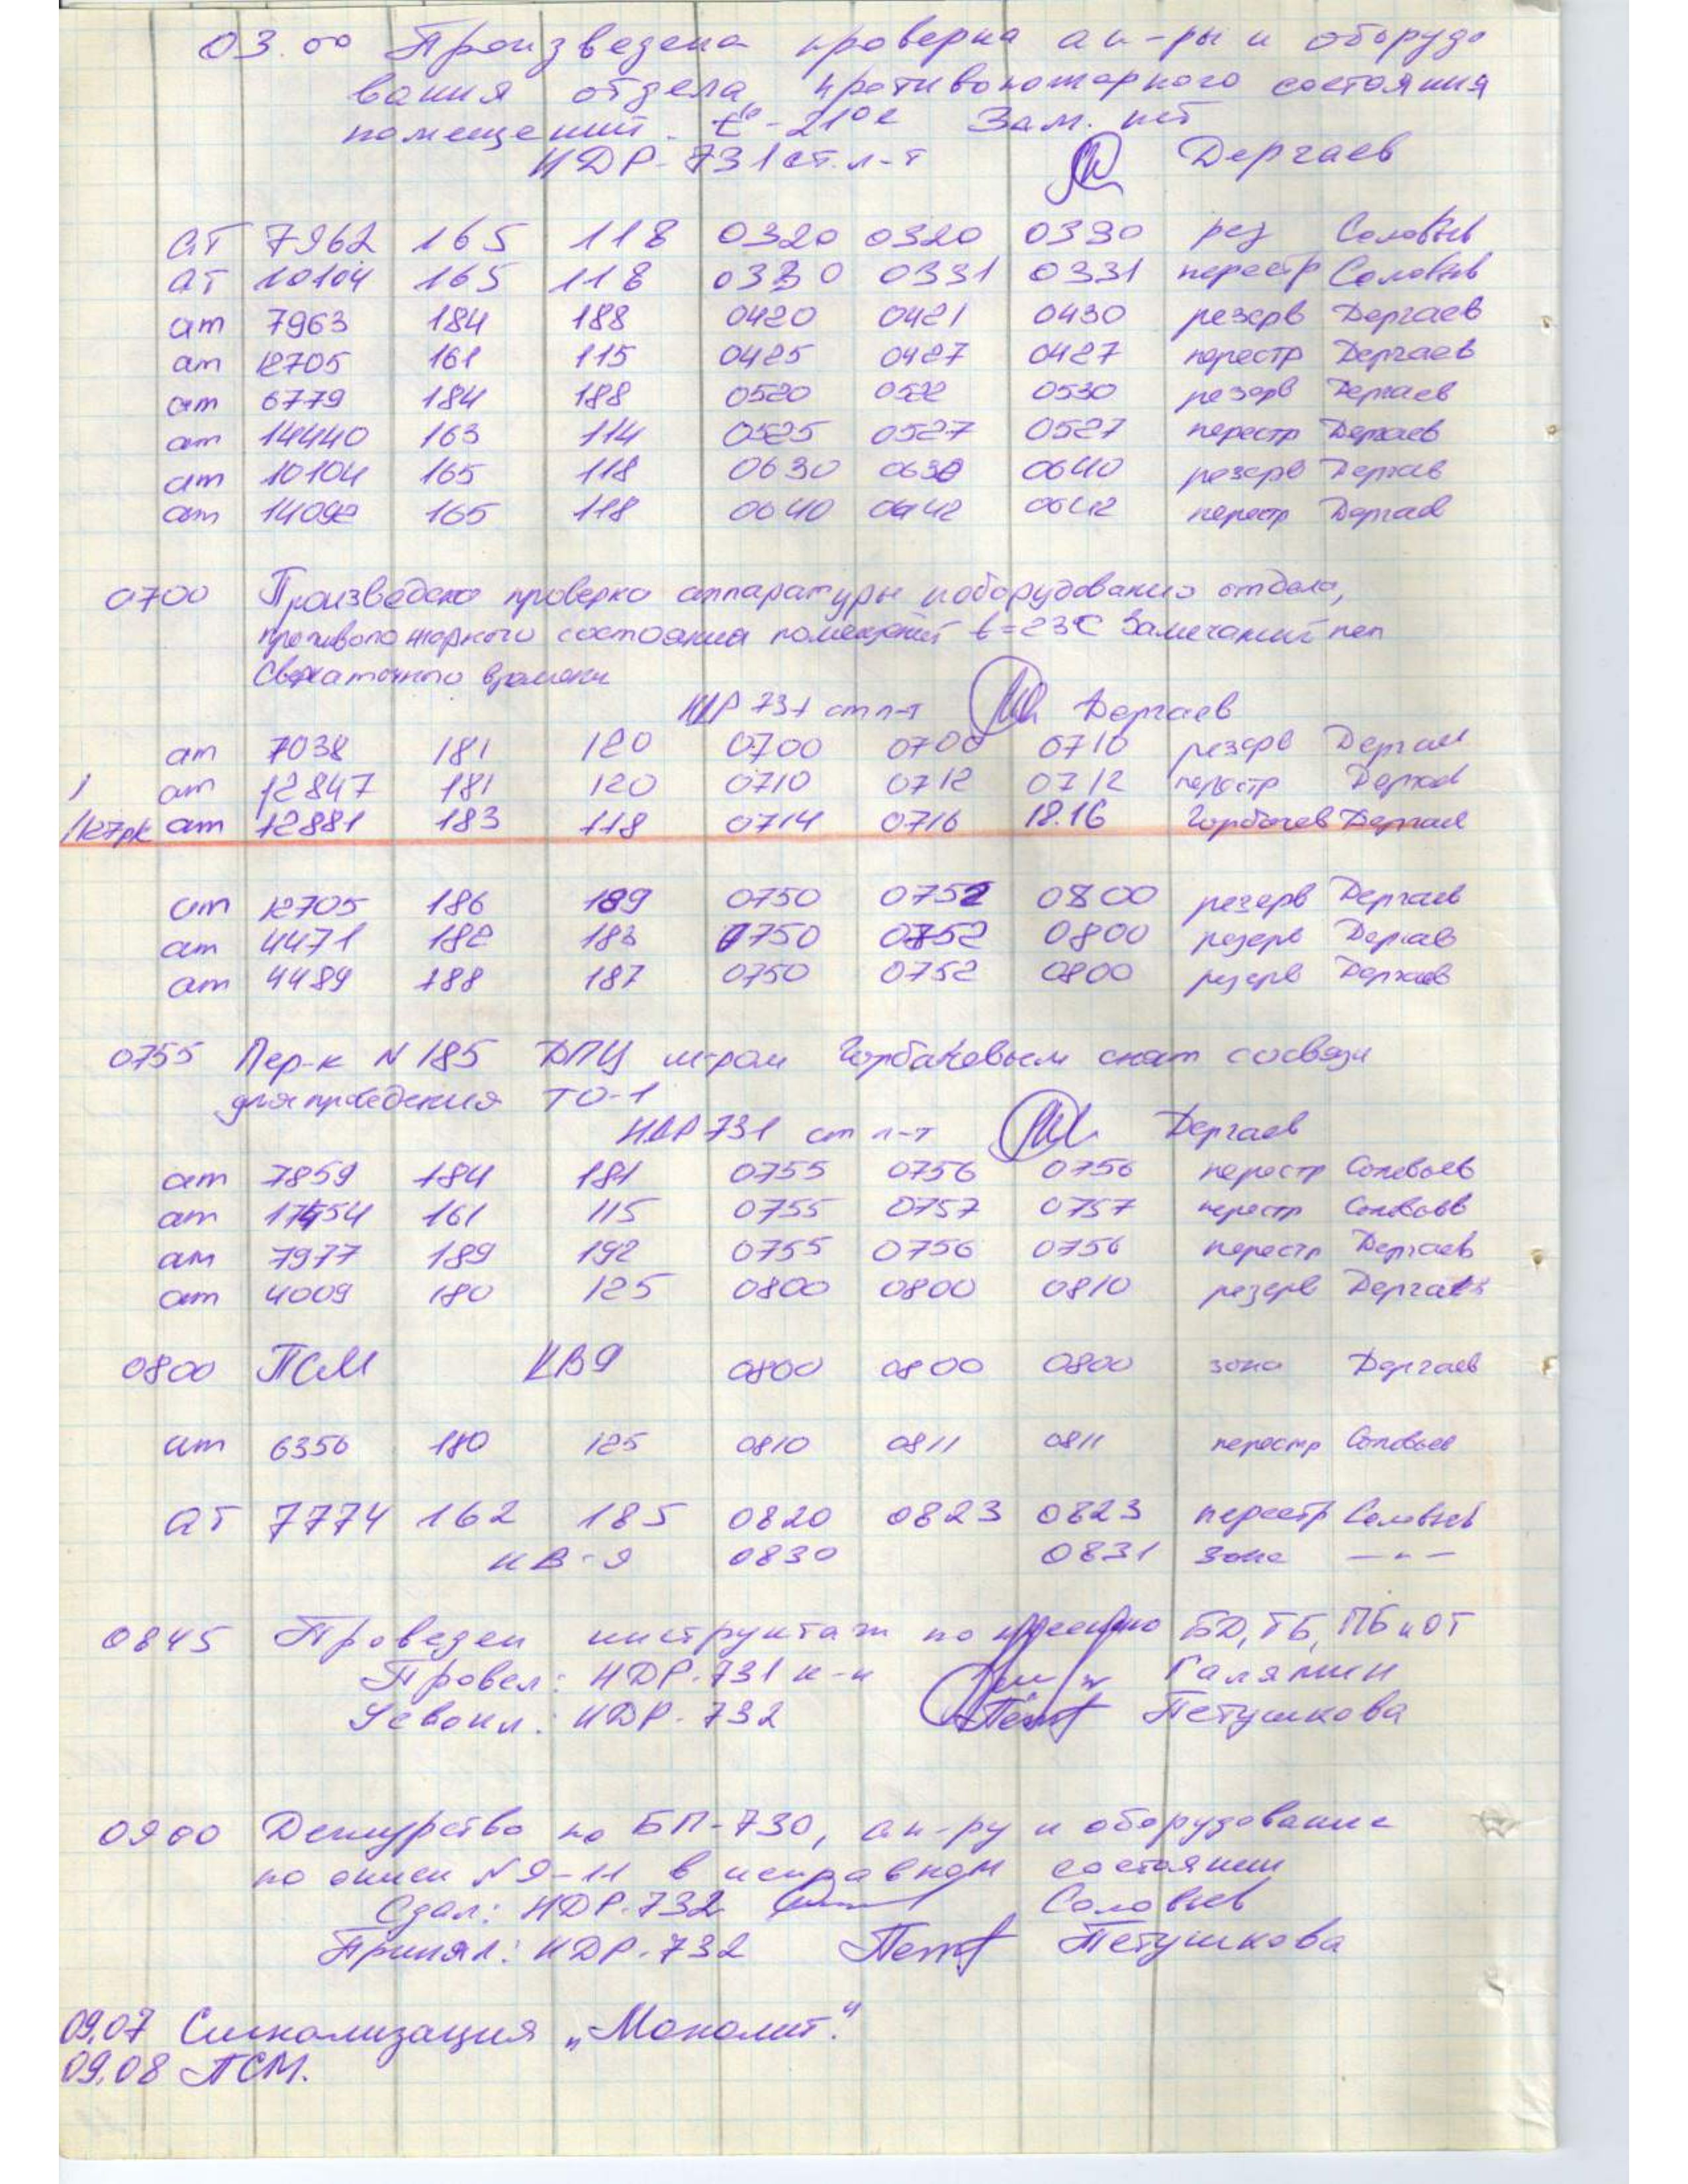 03.00 Произведена проверка ап-ры и оборудо
вания отдела, противопожарного состояния
помещений. t°-21°С Зам. нет
НДР-731 ст. л-т Дергаев
АТ 7962 165 118 0320 0320 0330 рез Соловьев
АТ 10104 165 118 0330 0331 0331 перестр Соловьев
ат 7963 184 188 0420 0421 0430 резерв Дергаев
ат 12705 161 115 0425 0427 0427 перестр Дергаев
ат 6779 184 188 0520 0522 0530 резерв Дергаев
ат 14440 163 114 0525 0527 0527 перестр Дергаев
ат 10104 165 118 0630 0630 0640 резерв Дергаев
ат 14092 165 118 0640 0642 0642 перестр Дергаев
0700 Произведена проверка аппаратуры и оборудования отдела,
противопожарного состояния помещений t=23°С Замечаний нет
времени
НДР 731 ст л-т Дергаев
ат 7038 181 120 0700 0700 0710 резерв Дергаев
1 ат 12847 181 120 0710 0712 0712 перестр Дергаев
ат 12881 183 118 0714 0716 18.16 Горбачев Дергаев
ат 12705 186 189 0750 0752 0800 резерв Дергаев
ат 4471 182 183 0750 0752 0800 резерв Дергаев
ат 4489 188 187 0750 0752 0800 резерв Дергаев
0755 Пер-к N 185 ДПЦ м-ром снят со связи
для проведения ТО-1
НДР 731 ст л-т Дергаев
ат 7859 184 181 0755 0756 0756 перестр Соловьев
ат 161 115 0755 0757 0757 перестр Соловьев
ат 7977 189 192 0755 0756 0756 перестр Дергаев
ат 4009 180 125 0800 0800 0810 резерв Дергаев
0800 ПСМ КВ9 0800 0800 0800 зона Дергаев
ат 6356 180 125 0810 0811 0811 перестр Соловьев
АТ 7774 162 185 0820 0823 0823 перестр Соловьев
КВ-9 0830 0831 зона —"—
0845 Проведен инструктаж по несению БД, ТБ, ПБ и ОТ
Провел: НДР-731 к-н Галямин
Усвоил: НДР-732 Петушкова
0900 Дежурство по БП-730, ап-ру и оборудование
по описи N 9-11 в исправном состоянии
Сдал: НДР-732 Соловьев
Принял: НДР-732 Петушкова
09.07 Сигнализация „Монолит."
09.08 ПСМ.